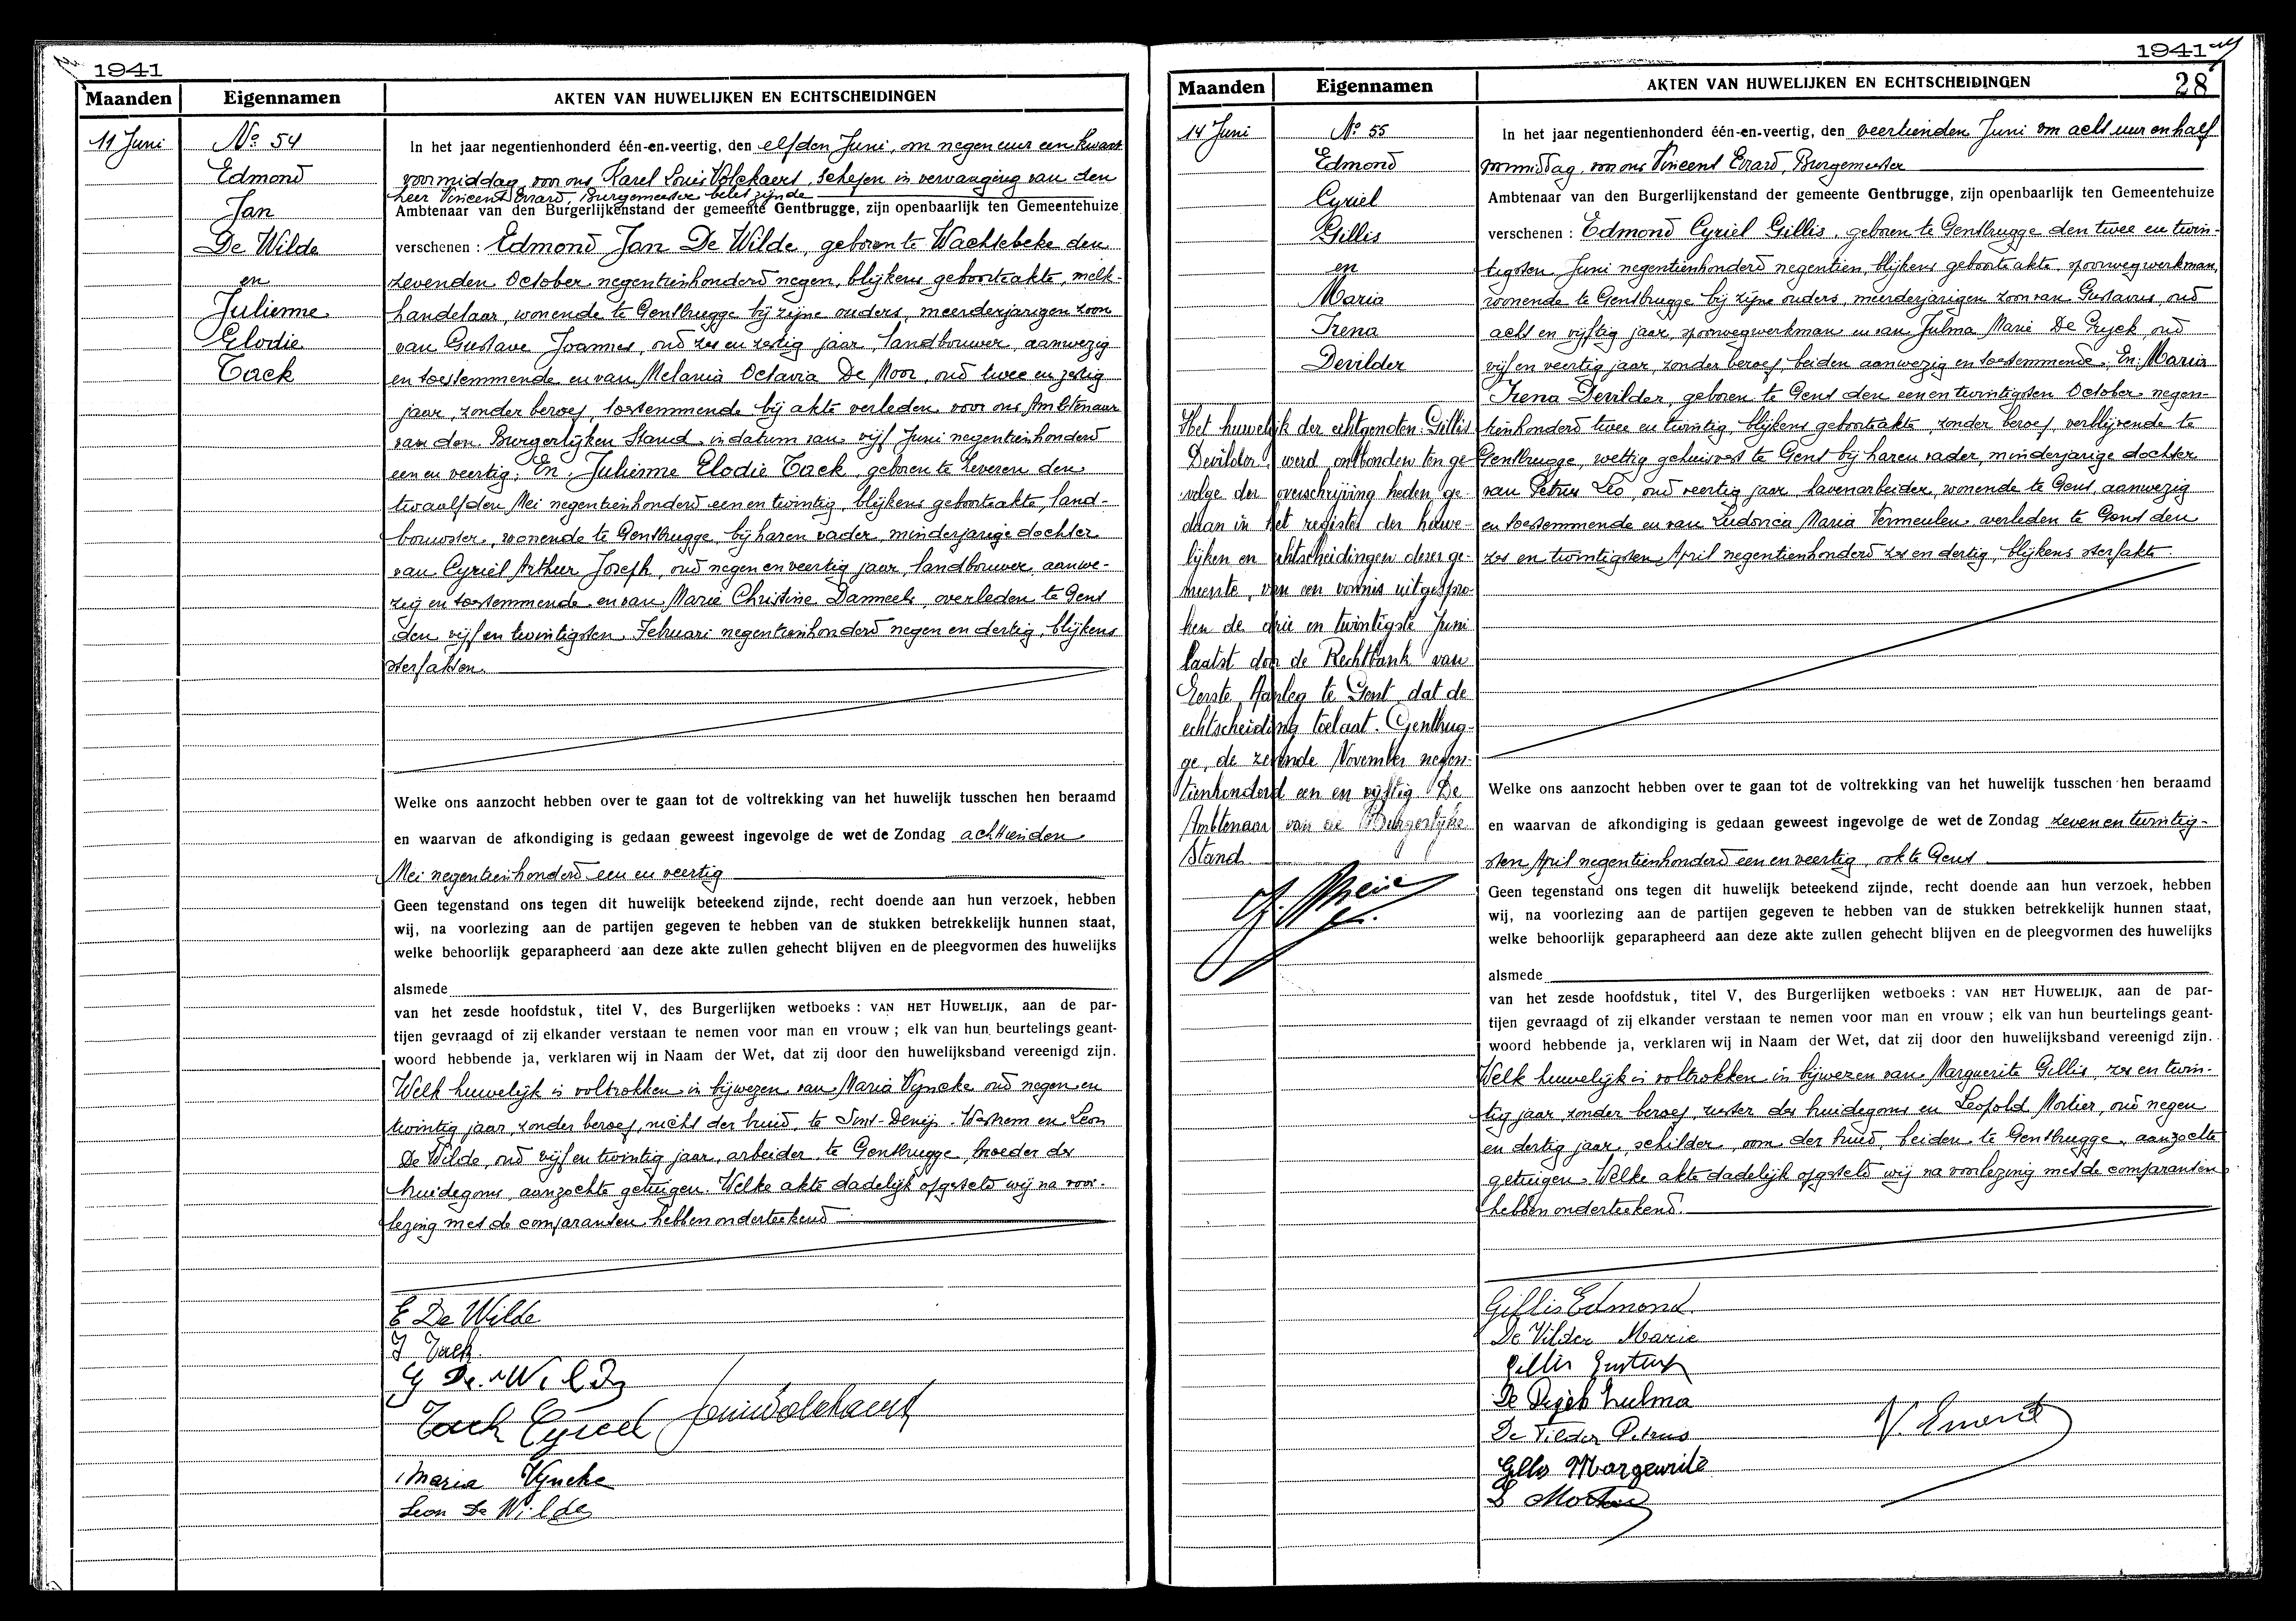 1941
Maanden Eigennamen AKTEN VAN HUWELIJKEN EN ECHTSCHEIDINGEN
11 Juni
No. 54
Edmond
Jan
De Wilde
en
Julienne
Elodie
Tack
In het jaar negentienhonderd één-en-veertig, den elfden Juni, om negen uur een kwart
voormiddag, voor ons Karel Louis Volckaert, Schepen in vervanging van den
heer Vincent Evrard, Burgemeester belet zijnde
Ambtenaar van den Burgerlijkenstand der gemeente Gentbrugge, zijn openbaarlijk ten Gemeentehuize
verschenen : Edmond Jan De Wilde, geboren te Wachtebeke den
zevenden October negentienhonderd negen, blijkens geboorteakte, melk-
handelaar, wonende te Gentbrugge bij zijne ouders, meerderjarigen zoon
van Gustave Joannes, oud zes en zestig jaar, landbouwer, aanwezig
en toestemmende en van Melania Octavia De Moor, oud twee en zestig
jaar, zonder beroep, toestemmende bij akte verleden voor ons Ambtenaar
van den Burgerlijken Stand in datum van vijf Juni negentienhonderd
een en veertig; En: Julienne Elodie Tack, geboren te Zeveren den
twaalfden Mei negentienhonderd een en twintig, blijkens geboorteakte, land-
bouwster, wonende te Gentbrugge, bij haren vader, minderjarige dochter
van Cyriel Arthur Joseph, oud negen en veertig jaar, landbouwer, aanwe-
zig en toestemmende en van Marie Christine Danneels, overleden te Gent
den vijf en twintigsten Februari negentienhonderd negen en dertig, blijkens
sterfakten.
Welke ons aanzocht hebben over te gaan tot de voltrekking van het huwelijk tusschen hen beraamd
en waarvan de afkondiging is gedaan geweest ingevolge de wet de Zondag achttienden
Mei negentienhonderd een en veertig
Geen tegenstand ons tegen dit huwelijk beteekend zijnde, recht doende aan hun verzoek, hebben
wij, na voorlezing aan de partijen gegeven te hebben van de stukken betrekkelijk hunnen staat,
welke behoorlijk geparapheerd aan deze akte zullen gehecht blijven en de pleegvormen des huwelijks
alsmede
van het zesde hoofdstuk, titel V, des Burgerlijken wetboeks : VAN HET HUWELIJK, aan de par-
tijen gevraagd of zij elkander verstaan te nemen voor man en vrouw ; elk van hun beurtelings geant-
woord hebbende ja, verklaren wij in Naam der Wet, dat zij door den huwelijksband vereenigd zijn.
Welk huwelijk is voltrokken in bijwezen van Maria Vyncke oud negen en
twintig jaar, zonder beroep, nicht der bruid, te Sint-Denijs-Westrem en Leon
De Wilde, oud vijf en twintig jaar, arbeider te Gentbrugge, broeder des
huidegoms, aanzochte getuigen. Welke akte dadelijk opgesteld wij na voor-
lezing met de comparanten hebben onderteekend
E De Wilde
J Tack
G De Wilde
Tack Cyriel Louis Volckaert
Maria Vyncke
Leon De Wilde
1941
28
Maanden Eigennamen AKTEN VAN HUWELIJKEN EN ECHTSCHEIDINGEN
14 Juni
No. 55
Edmond
Cyriel
Gillis
en
Maria
Irena
Devilder
Het huwelijk der echtgenoten Gillis
Devilder, werd ontbonden ten ge-
volge der overschrijving heden ge-
daan in het register der huwe-
lijken en echtscheidingen dezer ge-
meente, van een vonnis uitgespro-
ken de drie en twintigste Juni
laatst door de Rechtbank van
Eerste Aanleg te Gent dat de
echtscheiding toelaat. Gentbrug-
ge, de zevende November negen-
tienhonderd een en vijftig. De
Ambtenaar van de Burgerlijke
Stand
In het jaar negentienhonderd één-en-veertig, den veertienden Juni om acht uur en half
voormiddag, voor ons Vincent Evrard, Burgemeester
Ambtenaar van den Burgerlijkenstand der gemeente Gentbrugge, zijn openbaarlijk ten Gemeentehuize
verschenen : Edmond Cyriel Gillis, geboren te Gentbrugge den twee en twin-
tigsten Juni negentienhonderd negentien, blijkens geboorteakte, spoorwegwerkman,
wonende te Gentbrugge bij zijne ouders, meerderjarigen zoon van Gustavus, oud
acht en vijftig jaar, spoorwegwerkman en van Julma Marie De Gryck, oud
vijf en veertig jaar, zonder beroep, beiden aanwezig en toestemmende; En: Maria
Irena Devilder, geboren te Gent den een en twintigsten October negen-
tienhonderd twee en twintig, blijkens geboorteakte, zonder beroep, verblijvende te
Gentbrugge, wettig gehuisvest te Gent bij haren vader, minderjarige dochter
van Petrus Leo, oud veertig jaar, havenarbeider, wonende te Gent, aanwezig
en toestemmende en van Ludovica Maria Vermeulen, overleden te Gent den
zes en twintigsten April negentienhonderd zes en dertig, blijkens sterfakte.
Welke ons aanzocht hebben over te gaan tot de voltrekking van het huwelijk tusschen hen beraamd
en waarvan de afkondiging is gedaan geweest ingevolge de wet de Zondag zeven en twintig-
sten April negentienhonderd een en veertig, ook te Gent
Geen tegenstand ons tegen dit huwelijk beteekend zijnde, recht doende aan hun verzoek, hebben
wij, na voorlezing aan de partijen gegeven te hebben van de stukken betrekkelijk hunnen staat,
welke behoorlijk geparapheerd aan deze akte zullen gehecht blijven en de pleegvormen des huwelijks
alsmede
van het zesde hoofdstuk, titel V, des Burgerlijken wetboeks : VAN HET HUWELIJK, aan de par-
tijen gevraagd of zij elkander verstaan te nemen voor man en vrouw ; elk van hun beurtelings geant-
woord hebbende ja, verklaren wij in Naam der Wet, dat zij door den huwelijksband vereenigd zijn.
Welk huwelijk is voltrokken in bijwezen van Marguerite Gillis, zes en twin-
tig jaar, zonder beroep, zuster des huidegoms en Leopold Mortier, oud negen
en dertig jaar, schilder, oom der bruid, beiden te Gentbrugge, aanzochte
getuigen. Welke akte dadelijk opgesteld wij na voorlezing met de comparanten
hebben onderteekend.
Gillis Edmond
De Vilder Marie
Gillis Gustaaf
De Julma
De Vilder Petrus V. Evrard
Gillis Margeurite
L Mortier